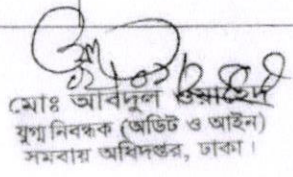 মোঃ আবদুল ওয়াহেদ
যুগ্ম নিবন্ধক (অডিট ও আইন)
সমবায় অধিদপ্তর, ঢাকা।